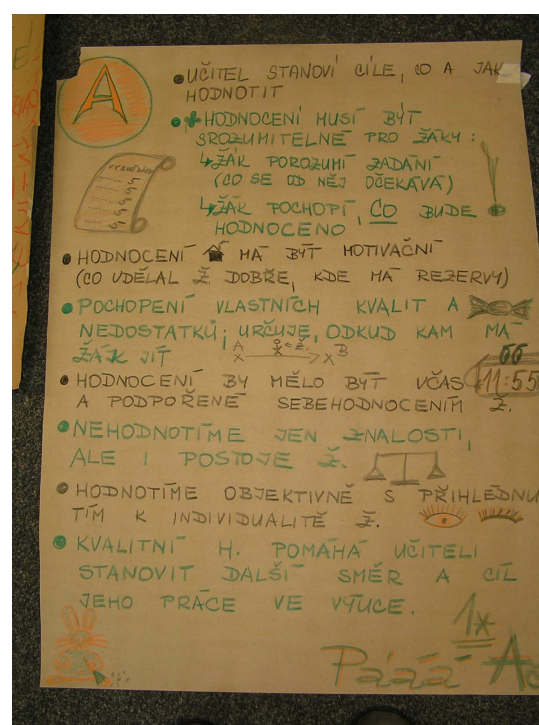 A
• UČITEL STANOVÍ CÍLE, CO A JAK
HODNOTIT
• HODNOCENÍ MUSÍ BÝT
SROZUMITELNÉ PRO ŽÁKY:
↳ ŽÁK POROZUMÍ ZADÁNÍ
(CO SE OD NĚJ OČEKÁVÁ)
↳ ŽÁK POCHOPÍ, CO BUDE
HODNOCENO
• HODNOCENÍ MÁ BÝT MOTIVAČNÍ
(CO UDĚLAL Ž. DOBŘE, KDE MÁ REZERVY)
• POCHOPENÍ VLASTNÍCH KVALIT A
NEDOSTATKŮ; URČUJE, ODKUD KAM MÁ
ŽÁK JÍT
A B
x x
• HODNOCENÍ BY MĚLO BÝT VČAS 11:55
A PODPOŘENÉ SEBEHODNOCENÍM Ž.
• NEHODNOTÍME JEN ZNALOSTI,
ALE I POSTOJE Ž.
• HODNOTÍME OBJEKTIVNĚ S PŘIHLÉDNU
TÍM K INDIVIDUALITĚ Ž.
• KVALITNÍ H. POMÁHÁ UČITELI
STANOVIT DALŠÍ SMĚR A CÍL
JEHO PRÁCE VE VÝUCE.
1*
Pááá